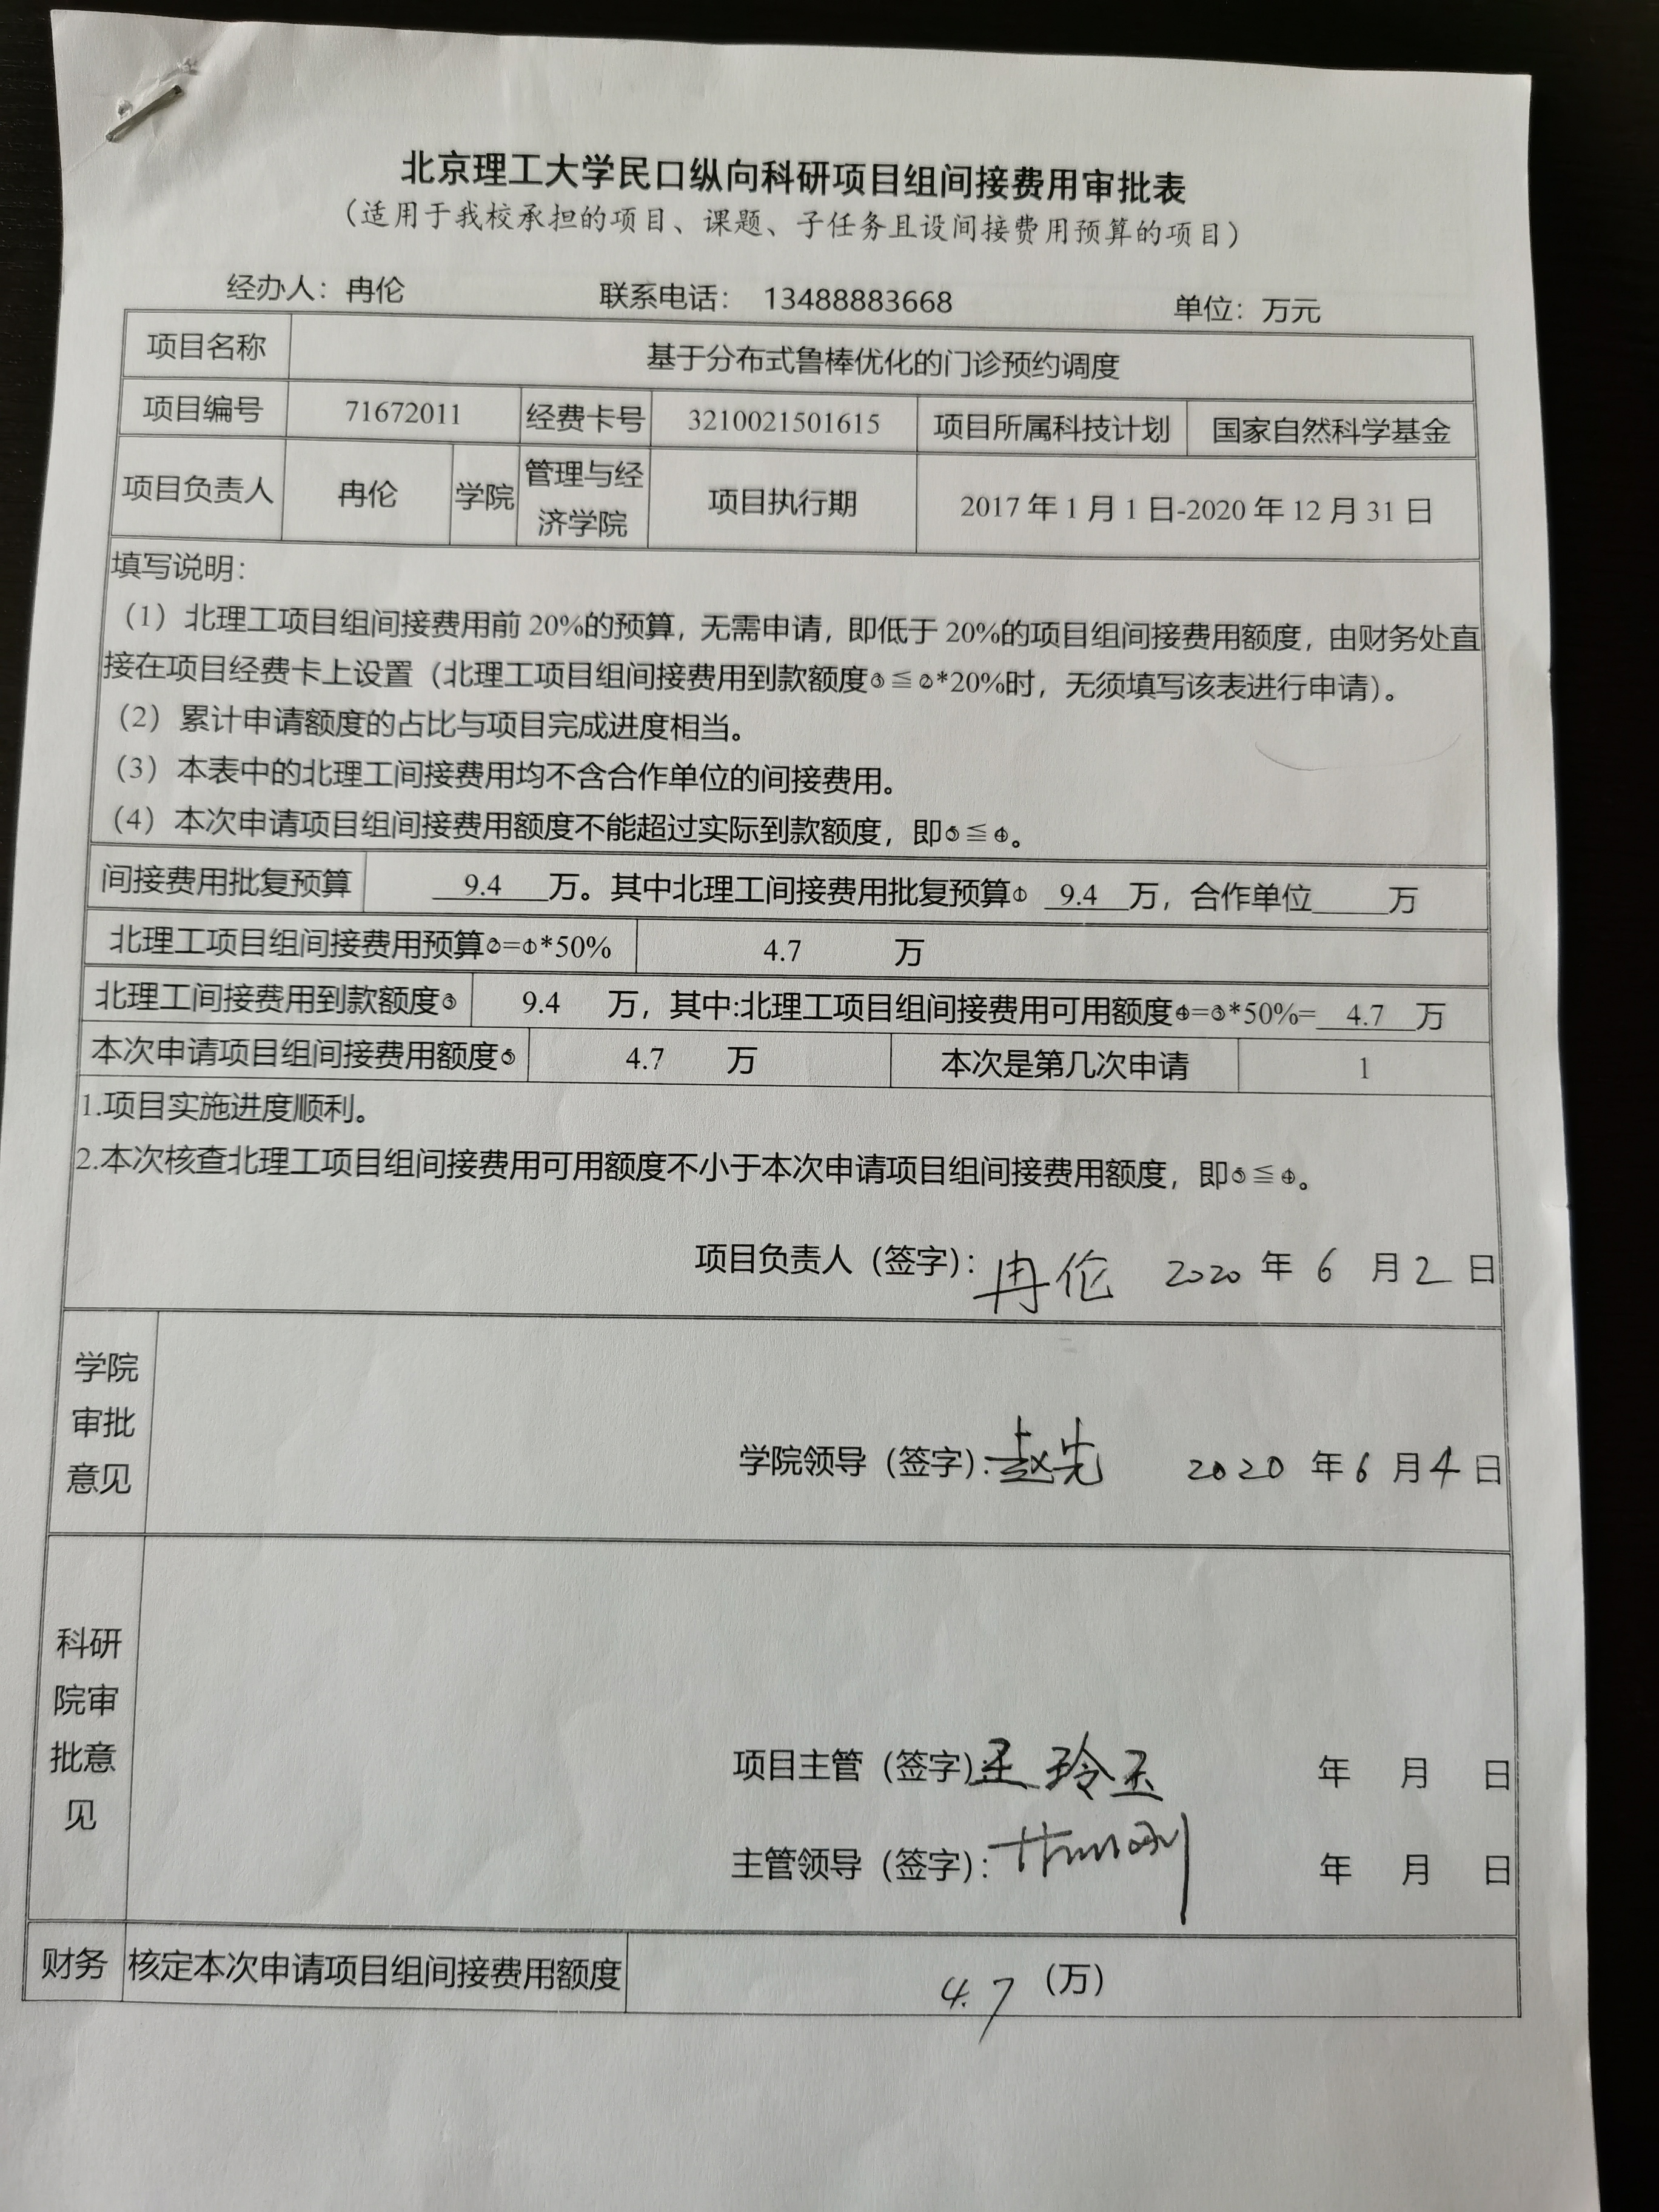 北京理工大学民口纵向科研项目组间接费用审批表
（适用于我校承担的项目、课题、子任务且设间接费用预算的项目）
经办人：冉伦 联系电话： 13488883668 单位：万元
项目名称 基于分布式鲁棒优化的门诊预约调度
项目编号 71672011 经费卡号 3210021501615 项目所属科技计划 国家自然科学基金
项目负责人 冉伦 学院 管理与经济学院 项目执行期 2017年1月1日-2020年12月31日
填写说明：
（1）北理工项目组间接费用前20%的预算，无需申请，即低于20%的项目组间接费用额度，由财务处直
接在项目经费卡上设置（北理工项目组间接费用到款额度③≦②*20%时，无须填写该表进行申请）。
（2）累计申请额度的占比与项目完成进度相当。
（3）本表中的北理工间接费用均不含合作单位的间接费用。
（4）本次申请项目组间接费用额度不能超过实际到款额度，即⑤≦④。
间接费用批复预算 9.4 万。其中北理工间接费用批复预算① 9.4 万，合作单位 万
北理工项目组间接费用预算②=①*50% 4.7 万
北理工间接费用到款额度③ 9.4 万，其中:北理工项目组间接费用可用额度④=③*50%= 4.7 万
本次申请项目组间接费用额度⑤ 4.7 万 本次是第几次申请 1
1.项目实施进度顺利。
2.本次核查北理工项目组间接费用可用额度不小于本次申请项目组间接费用额度，即⑤≦④。
项目负责人（签字）：冉伦 2020 年 6 月 2 日
学院
审批
意见
学院领导（签字）：赵先 2020 年 6 月 4 日
科研
院审
批意
见
项目主管（签字）：王玲玉 年 月 日
主管领导（签字）： 年 月 日
财务 核定本次申请项目组间接费用额度 4.7 （万）